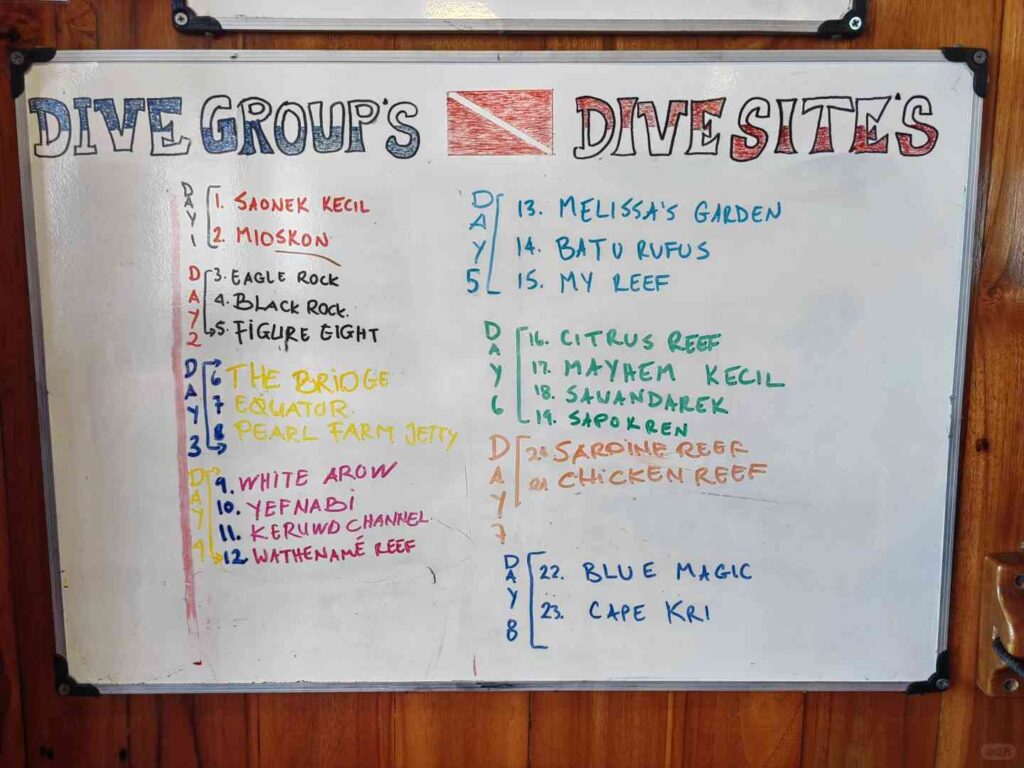 DIVE GROUP'S DIVE SITE'S
DAY 1
1. SAONEK KECIL
2. MIOSKON
DAY 2
3. EAGLE ROCK
4. BLACK ROCK.
5. FIGURE EIGHT
DAY 3
6 THE BRIDGE
7 EQUATOR.
8 PEARL FARM JETTY
DAY 4
9. WHITE AROW
10. YEFNABI
11. KERUWD CHANNEL.
12. WATHENAMÉ REEF
DAY 5
13. MELISSA'S GARDEN
14. BATU RUFUS
15. MY REEF
DAY 6
16. CITRUS REEF
17. MAYHEM KECIL
18. SAUANDAREK
19. SAPOKREN
DAY 7
20 SARDINE REEF
21 CHICKEN REEF
DAY 8
22. BLUE MAGIC
23. CAPE KRI